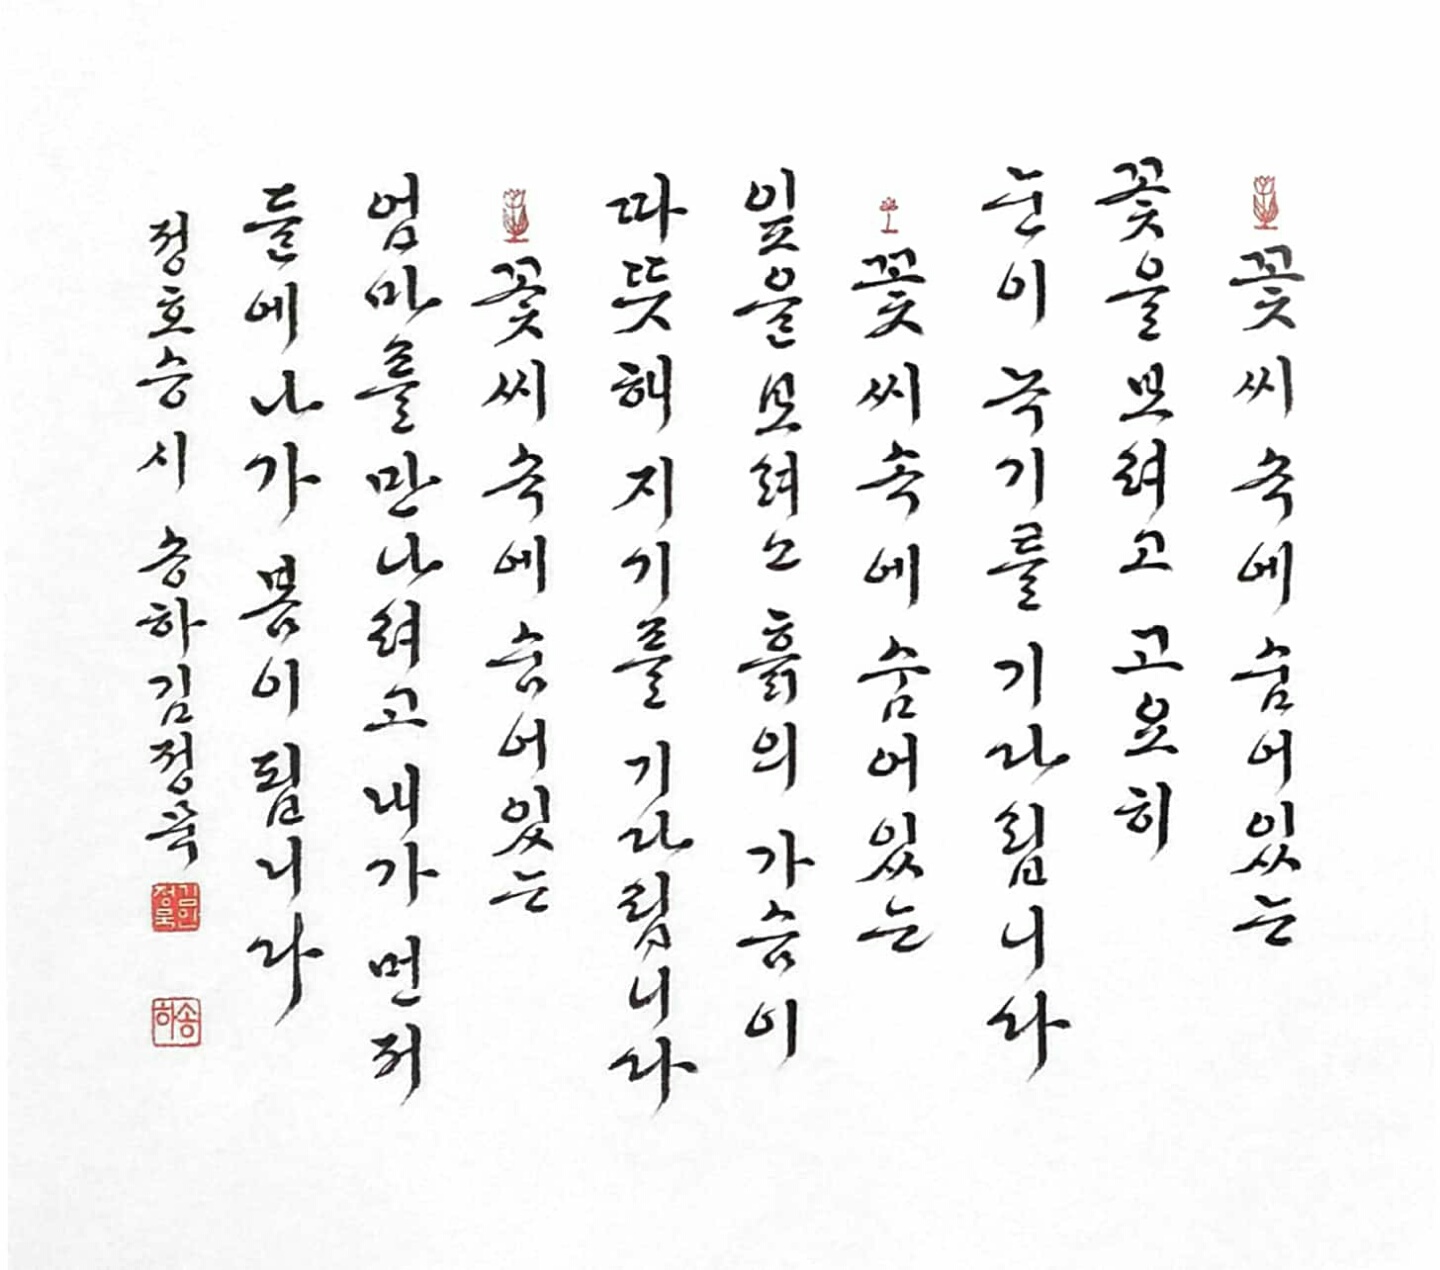 꽃씨 속에 숨어있는
꽃을 보려고 고요히
눈이 녹기를 기다립니다
꽃씨 속에 숨어있는
잎을 보려고 흙의 가슴이
따뜻해지기를 기다립니다
꽃씨 속에 숨어있는
엄마를 만나려고 내가 먼저
들에 나가 봄이 됩니다
정호승 시 송하 김정묵
송하